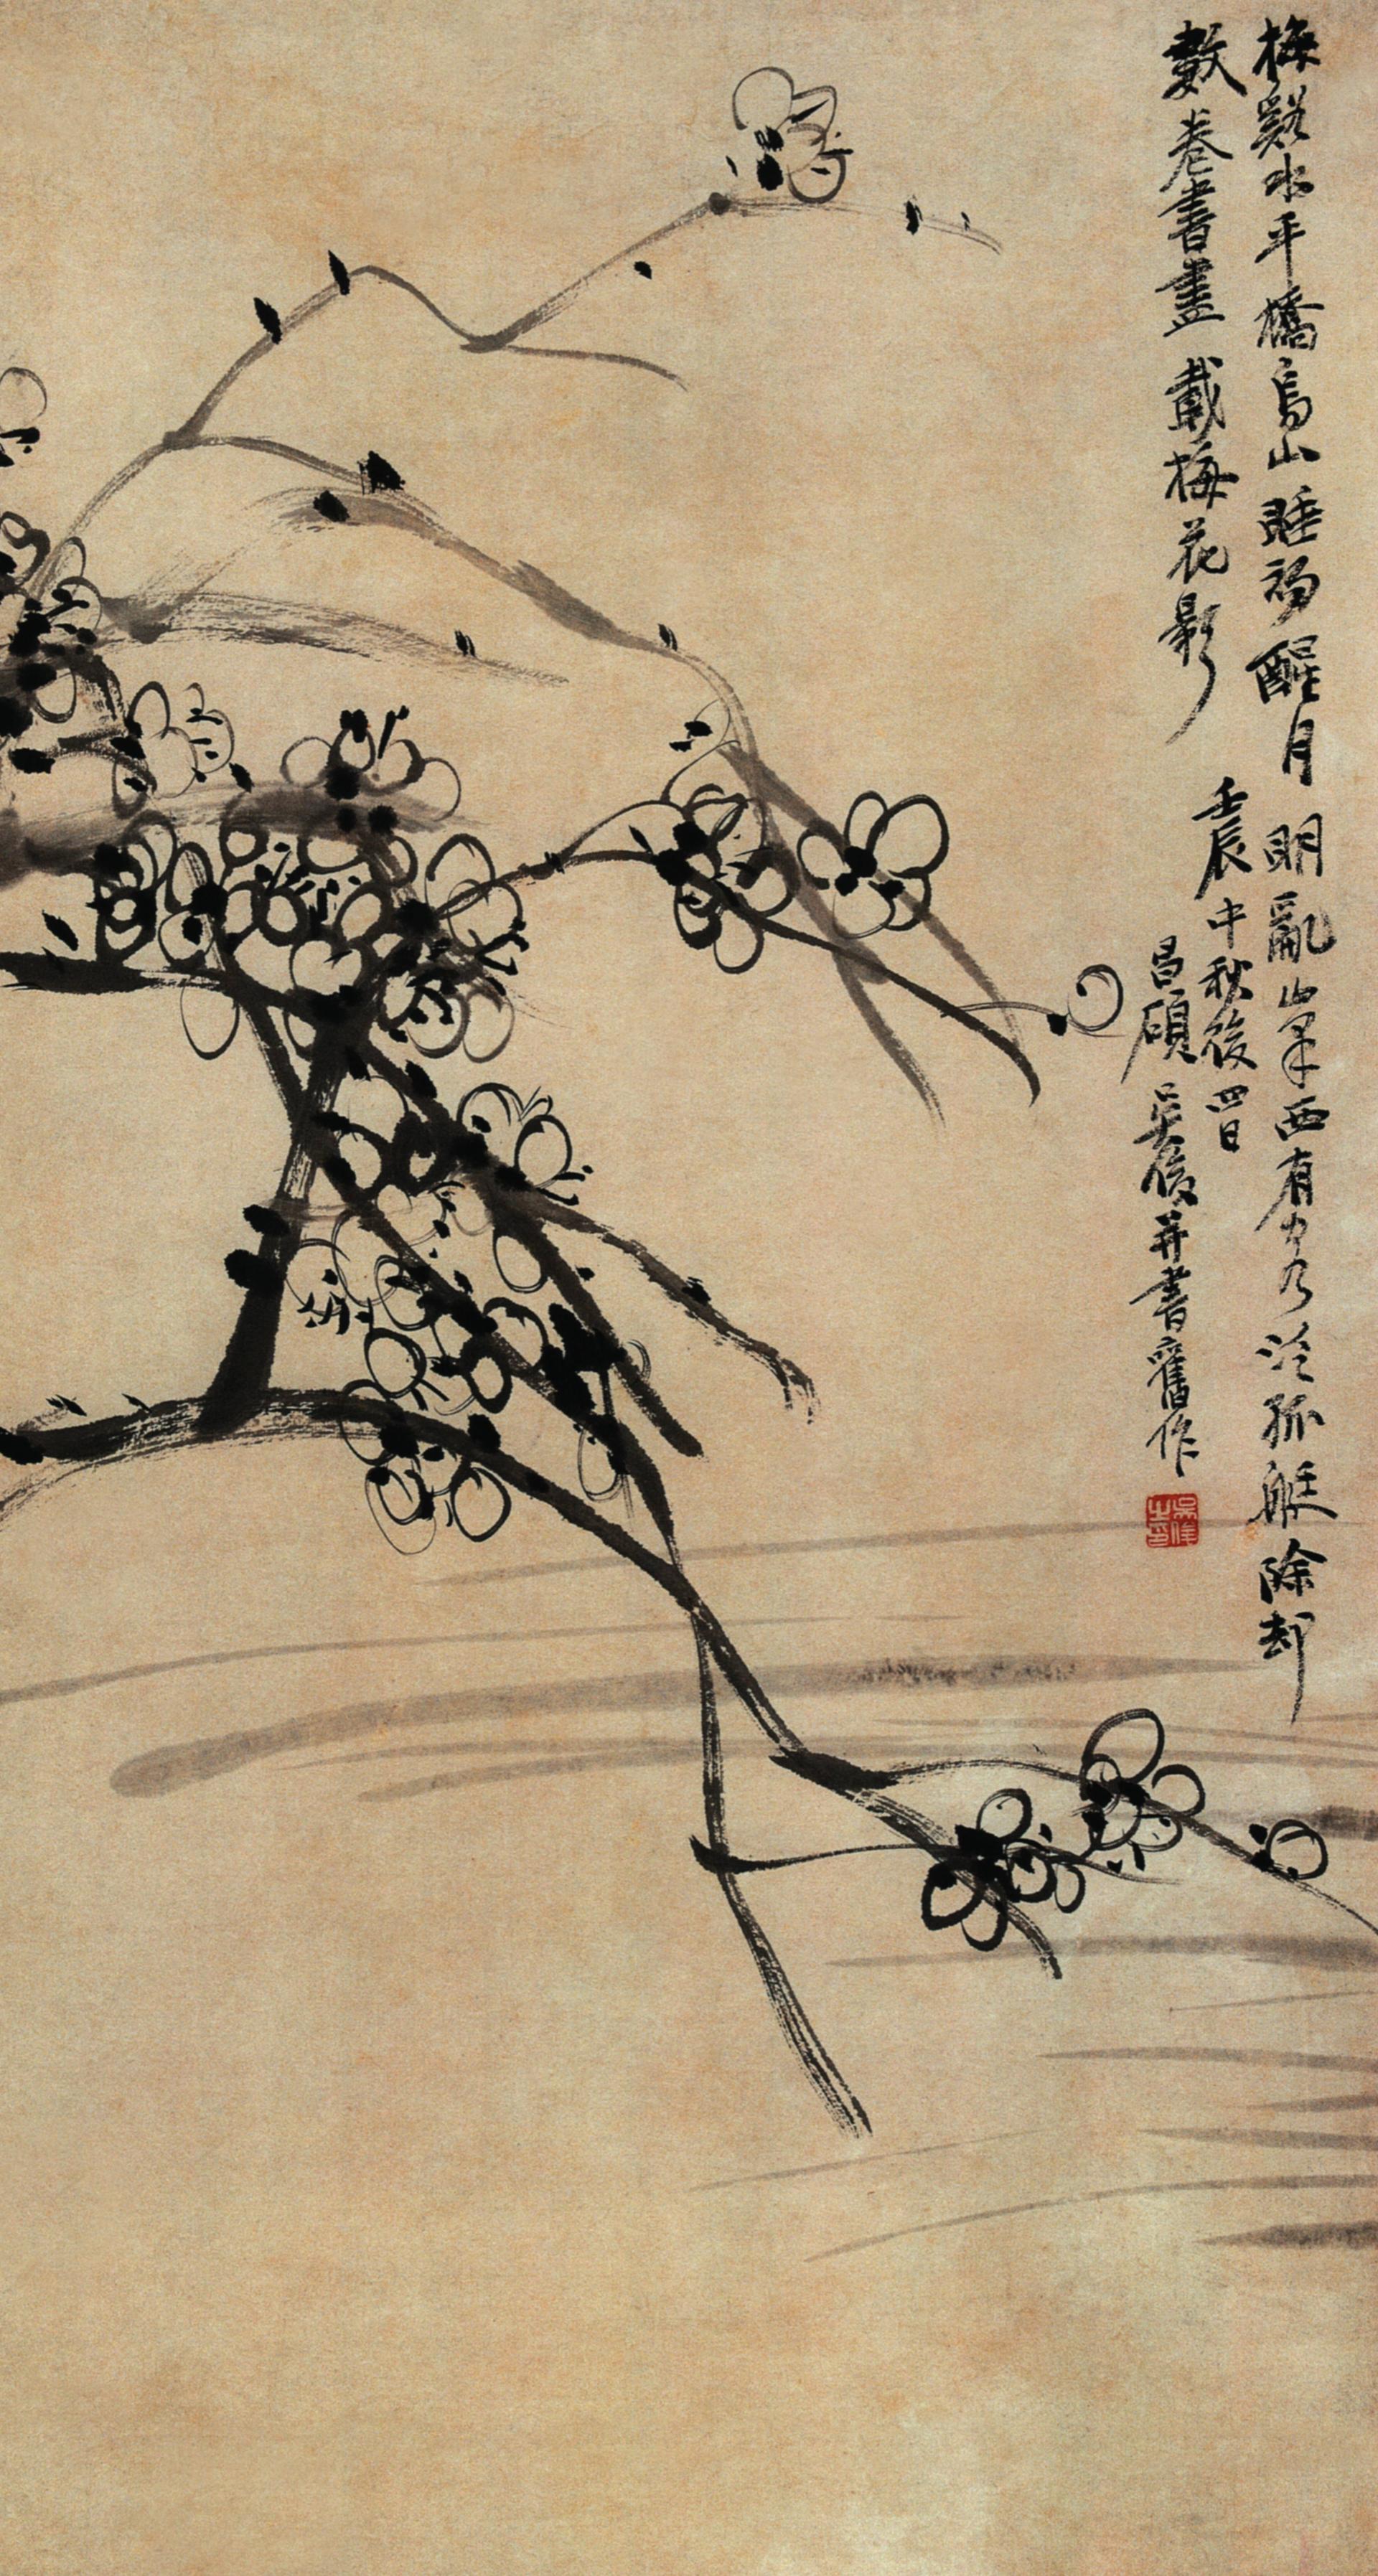 梅谿水平橋烏山睡初醒月明亂峯西有客泛孤艇除却
數卷書盡載梅花影
壬辰中秋後四日
昌碩吳俊并書舊作
吳俊之印